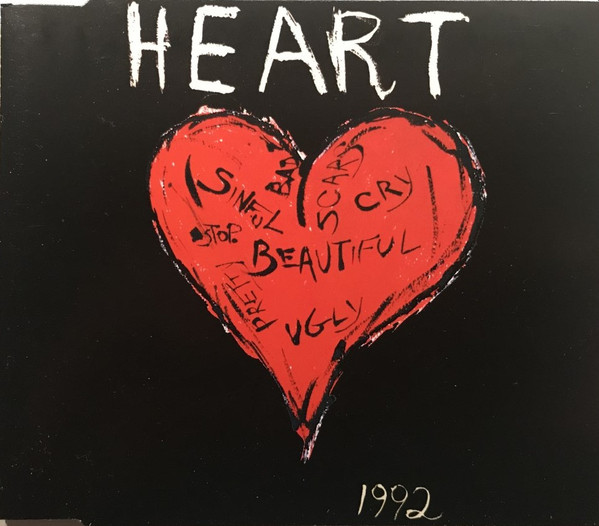 HEART
BAD
SCARY
SINFUL
CRY
STOP.
BEAUTIFUL
PRETTY
UGLY
1992